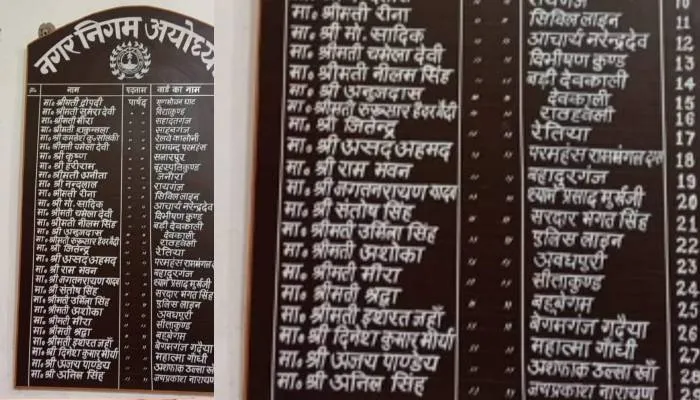 नगर निगम अयोध्या
नाम पदनाम वार्ड का नाम
मा० श्रीमती द्रोपदी पार्षद
मा० श्रीमती सुमेरा देवी " " विद्याकुण्ड
मा० श्रीमती मीरा " " सहादतगंज
मा० श्रीमती शकुन्तला " "
मा० श्री कमलेश कु० सोलंकी " " रेलवे कालोनी
मा० श्रीमती चमेला देवी " " रामचन्द्र परमहंस
मा० श्री कृष्ण " "
मा० श्री हरीराम " "
मा० श्रीमती अनीता " " जनौरा
मा० श्री नन्दलाल " " रायगंज
मा० श्रीमती रीना " " सिविल लाइन
मा० श्री मो० सादिक " " आचार्य नरेन्द्रदेव
मा० श्रीमती चमेला देवी " " विभीषण कुण्ड
मा० श्रीमती नीलम सिंह " " बड़ी देवकाली
मा० श्री अनुजदास " " देवकाली
मा० श्रीमती रुखसार हैदर मैंदी " " राठहवेली
मा० श्री जितेन्द्र " " रेतिया
मा० श्री असद अहमद " " परमहंस राममंगल दास
मा० श्री राम भवन " " बहादुरगंज
मा० श्री जगतनारायण यादव " " श्याम प्रसाद मुखर्जी
मा० श्री संतोष सिंह " " सरदार भगत सिंह
मा० श्रीमती उर्मिला सिंह " " पुलिस लाइन
मा० श्रीमती अशोका " " अवधपुरी
मा० श्रीमती मीरा " " सीताकुण्ड
मा० श्रीमती श्रद्धा " " बहूबेगम
मा० श्रीमती इशरत जहाँ " " बेगमगंज गढ़ैया
मा० श्री दिनेश कुमार मौर्या " " महात्मा गाँधी
मा० श्री अजय पाण्डेय " " अशफाक उल्ला खाँ
मा० श्री अनिल सिंह " " जयप्रकाश नारायण
रायगंज 10
मा० श्रीमती रीना " " सिविल लाइन 11
मा० श्री मो० सादिक " " आचार्य नरेन्द्रदेव 12
मा० श्रीमती चमेला देवी " " विभीषण कुण्ड 13
मा० श्रीमती नीलम सिंह " " बड़ी देवकाली 14
मा० श्री अनुजदास " " देवकाली 15
मा० श्रीमती रुखसार हैदर मैंदी " " राठहवेली 16
मा० श्री जितेन्द्र " " रेतिया 17
मा० श्री असद अहमद " " परमहंस राममंगल दास 18
मा० श्री राम भवन " " बहादुरगंज 19
मा० श्री जगतनारायण यादव " " श्याम प्रसाद मुखर्जी 20
मा० श्री संतोष सिंह " " सरदार भगत सिंह 21
मा० श्रीमती उर्मिला सिंह " " पुलिस लाइन 22
मा० श्रीमती अशोका " " अवधपुरी 23
मा० श्रीमती मीरा " " सीताकुण्ड 24
मा० श्रीमती श्रद्धा " " बहूबेगम 25
मा० श्रीमती इशरत जहाँ " " बेगमगंज गढ़ैया 26
मा० श्री दिनेश कुमार मौर्या " " महात्मा गाँधी 27
मा० श्री अजय पाण्डेय " " अशफाक उल्ला खाँ 28
मा० श्री अनिल सिंह " " जयप्रकाश नारायण